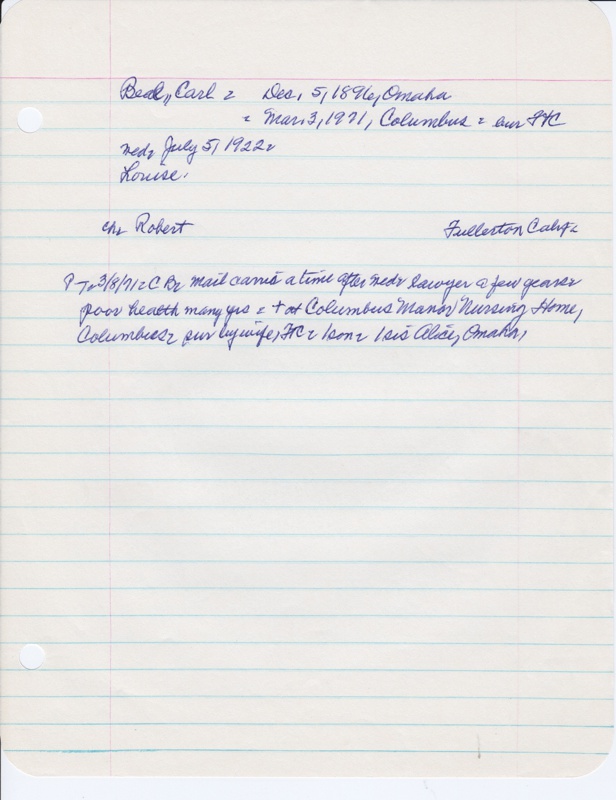 Beal, Carl = Dec. 5, 1896, Omaha
= Mar. 3, 1971, Columbus = bur
med July 5, 1922 =
Louise.
ch= Robert Fullerton Calif =
3/8/71 = mail carrier a time after med = lawyer a few years =
poor health many yrs = + at Columbus Manor Nursing Home,
Columbus = sur by wife, = 1 son = 1 sis Alice, Omaha,